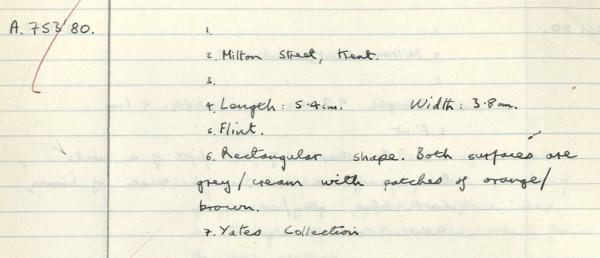 A.753'80. 1.
2. Milton Street, Kent.
3.
4. Length: 5.4cm. Width: 3.8cm.
5. Flint.
6. Rectangular shape. Both surfaces are
grey/cream with patches of orange/
brown.
7. Yates Collection